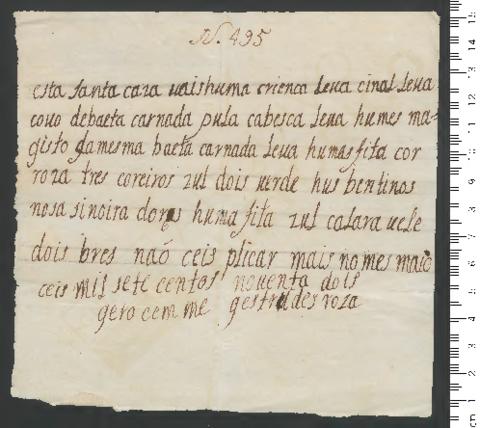 N. 495
esta santa caza vaishuma crienca leva cinal leva
covo debaeta carnada pula cabesca leva humes ma-
gisto damesma baeta carnada leva humas fita cor
roza tres coreiros zul dois verde hus bentinos
nosa sinoira dores huma fita zul calara vele
dois bres naõ ceis plicar mais no mes maio
ceis mil sete centos noventa dois
gero cem me gestrudes roza